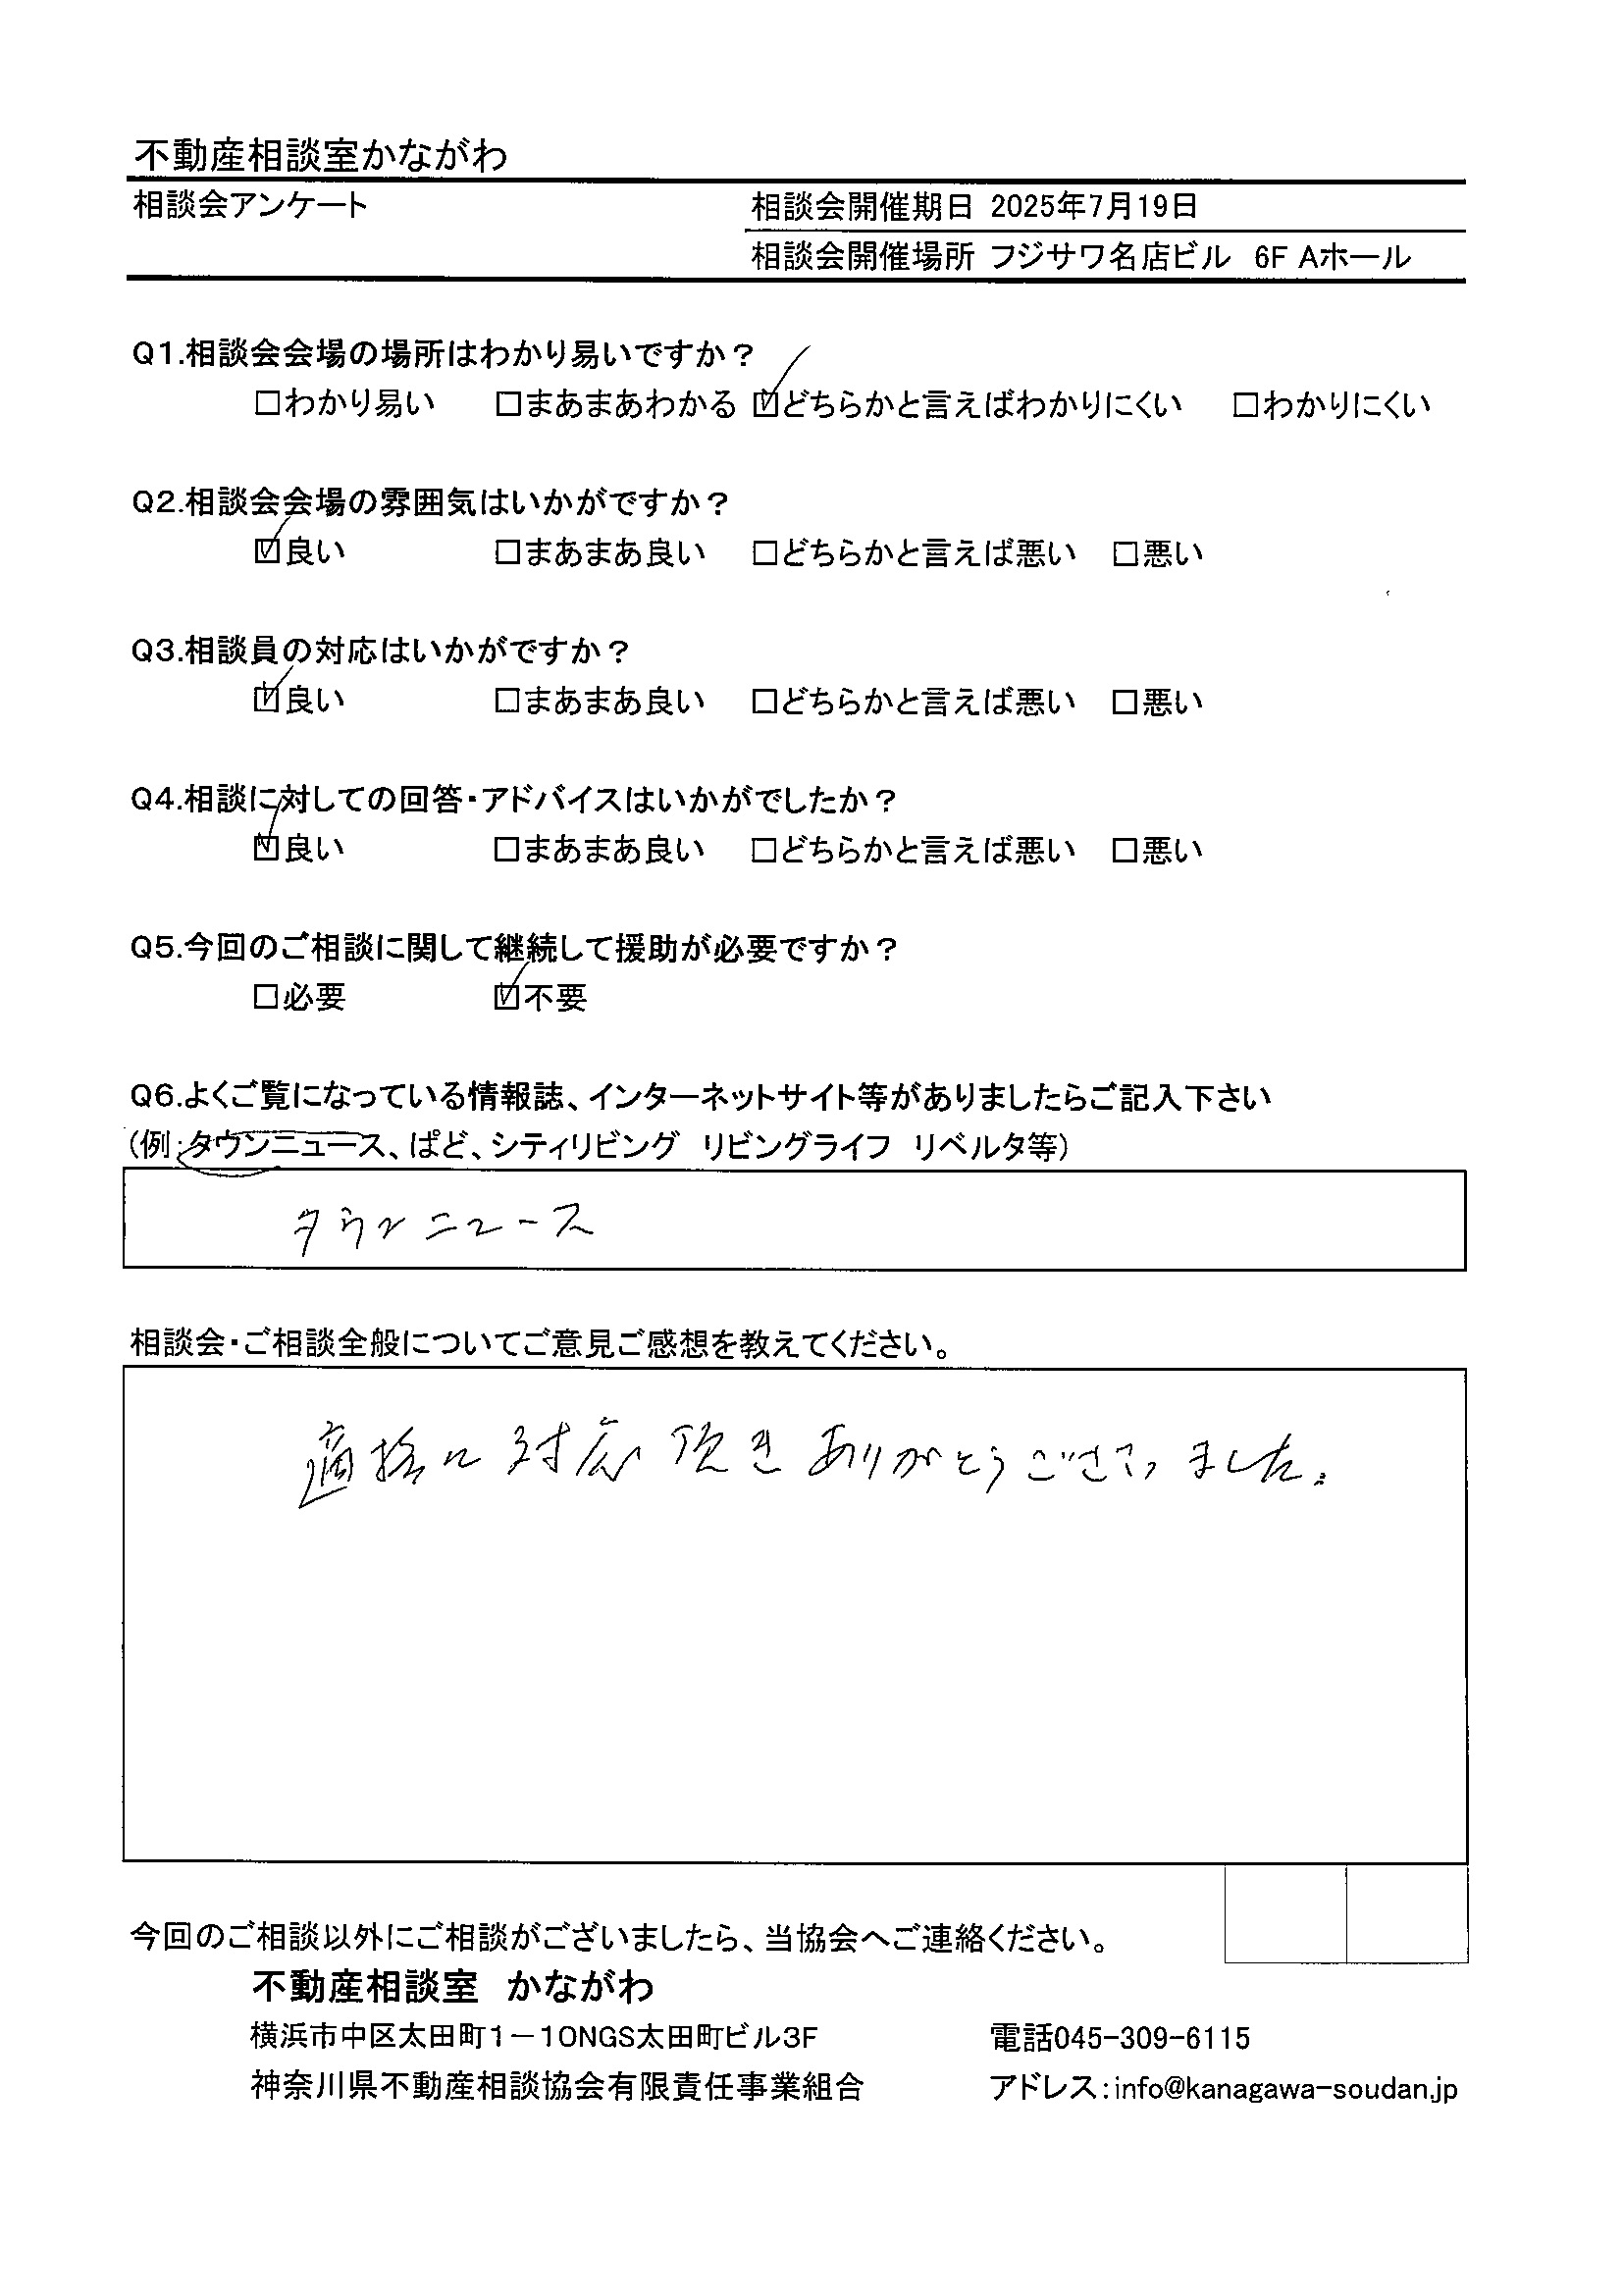 不動産相談室かながわ
相談会アンケート
相談会開催期日 2025年7月19日
相談会開催場所 フジサワ名店ビル 6F Aホール
Q1.相談会会場の場所はわかり易いですか？
□わかり易い □まあまあわかる ☑どちらかと言えばわかりにくい □わかりにくい
Q2.相談会会場の雰囲気はいかがですか？
☑良い □まあまあ良い □どちらかと言えば悪い □悪い
Q3.相談員の対応はいかがですか？
☑良い □まあまあ良い □どちらかと言えば悪い □悪い
Q4.相談に対しての回答・アドバイスはいかがでしたか？
☑良い □まあまあ良い □どちらかと言えば悪い □悪い
Q5.今回のご相談に関して継続して援助が必要ですか？
□必要 ☑不要
Q6.よくご覧になっている情報誌、インターネットサイト等がありましたらご記入下さい
（例：タウンニュース、ぱど、シティリビング リビングライフ リベルタ等）
タウンニュース
相談会・ご相談全般についてご意見ご感想を教えてください。
適格に対応頂きありがとうございました。
今回のご相談以外にご相談がございましたら、当協会へご連絡ください。
不動産相談室 かながわ
横浜市中区太田町1－10NGS太田町ビル3F 電話045-309-6115
神奈川県不動産相談協会有限責任事業組合 アドレス：info@kanagawa-soudan.jp